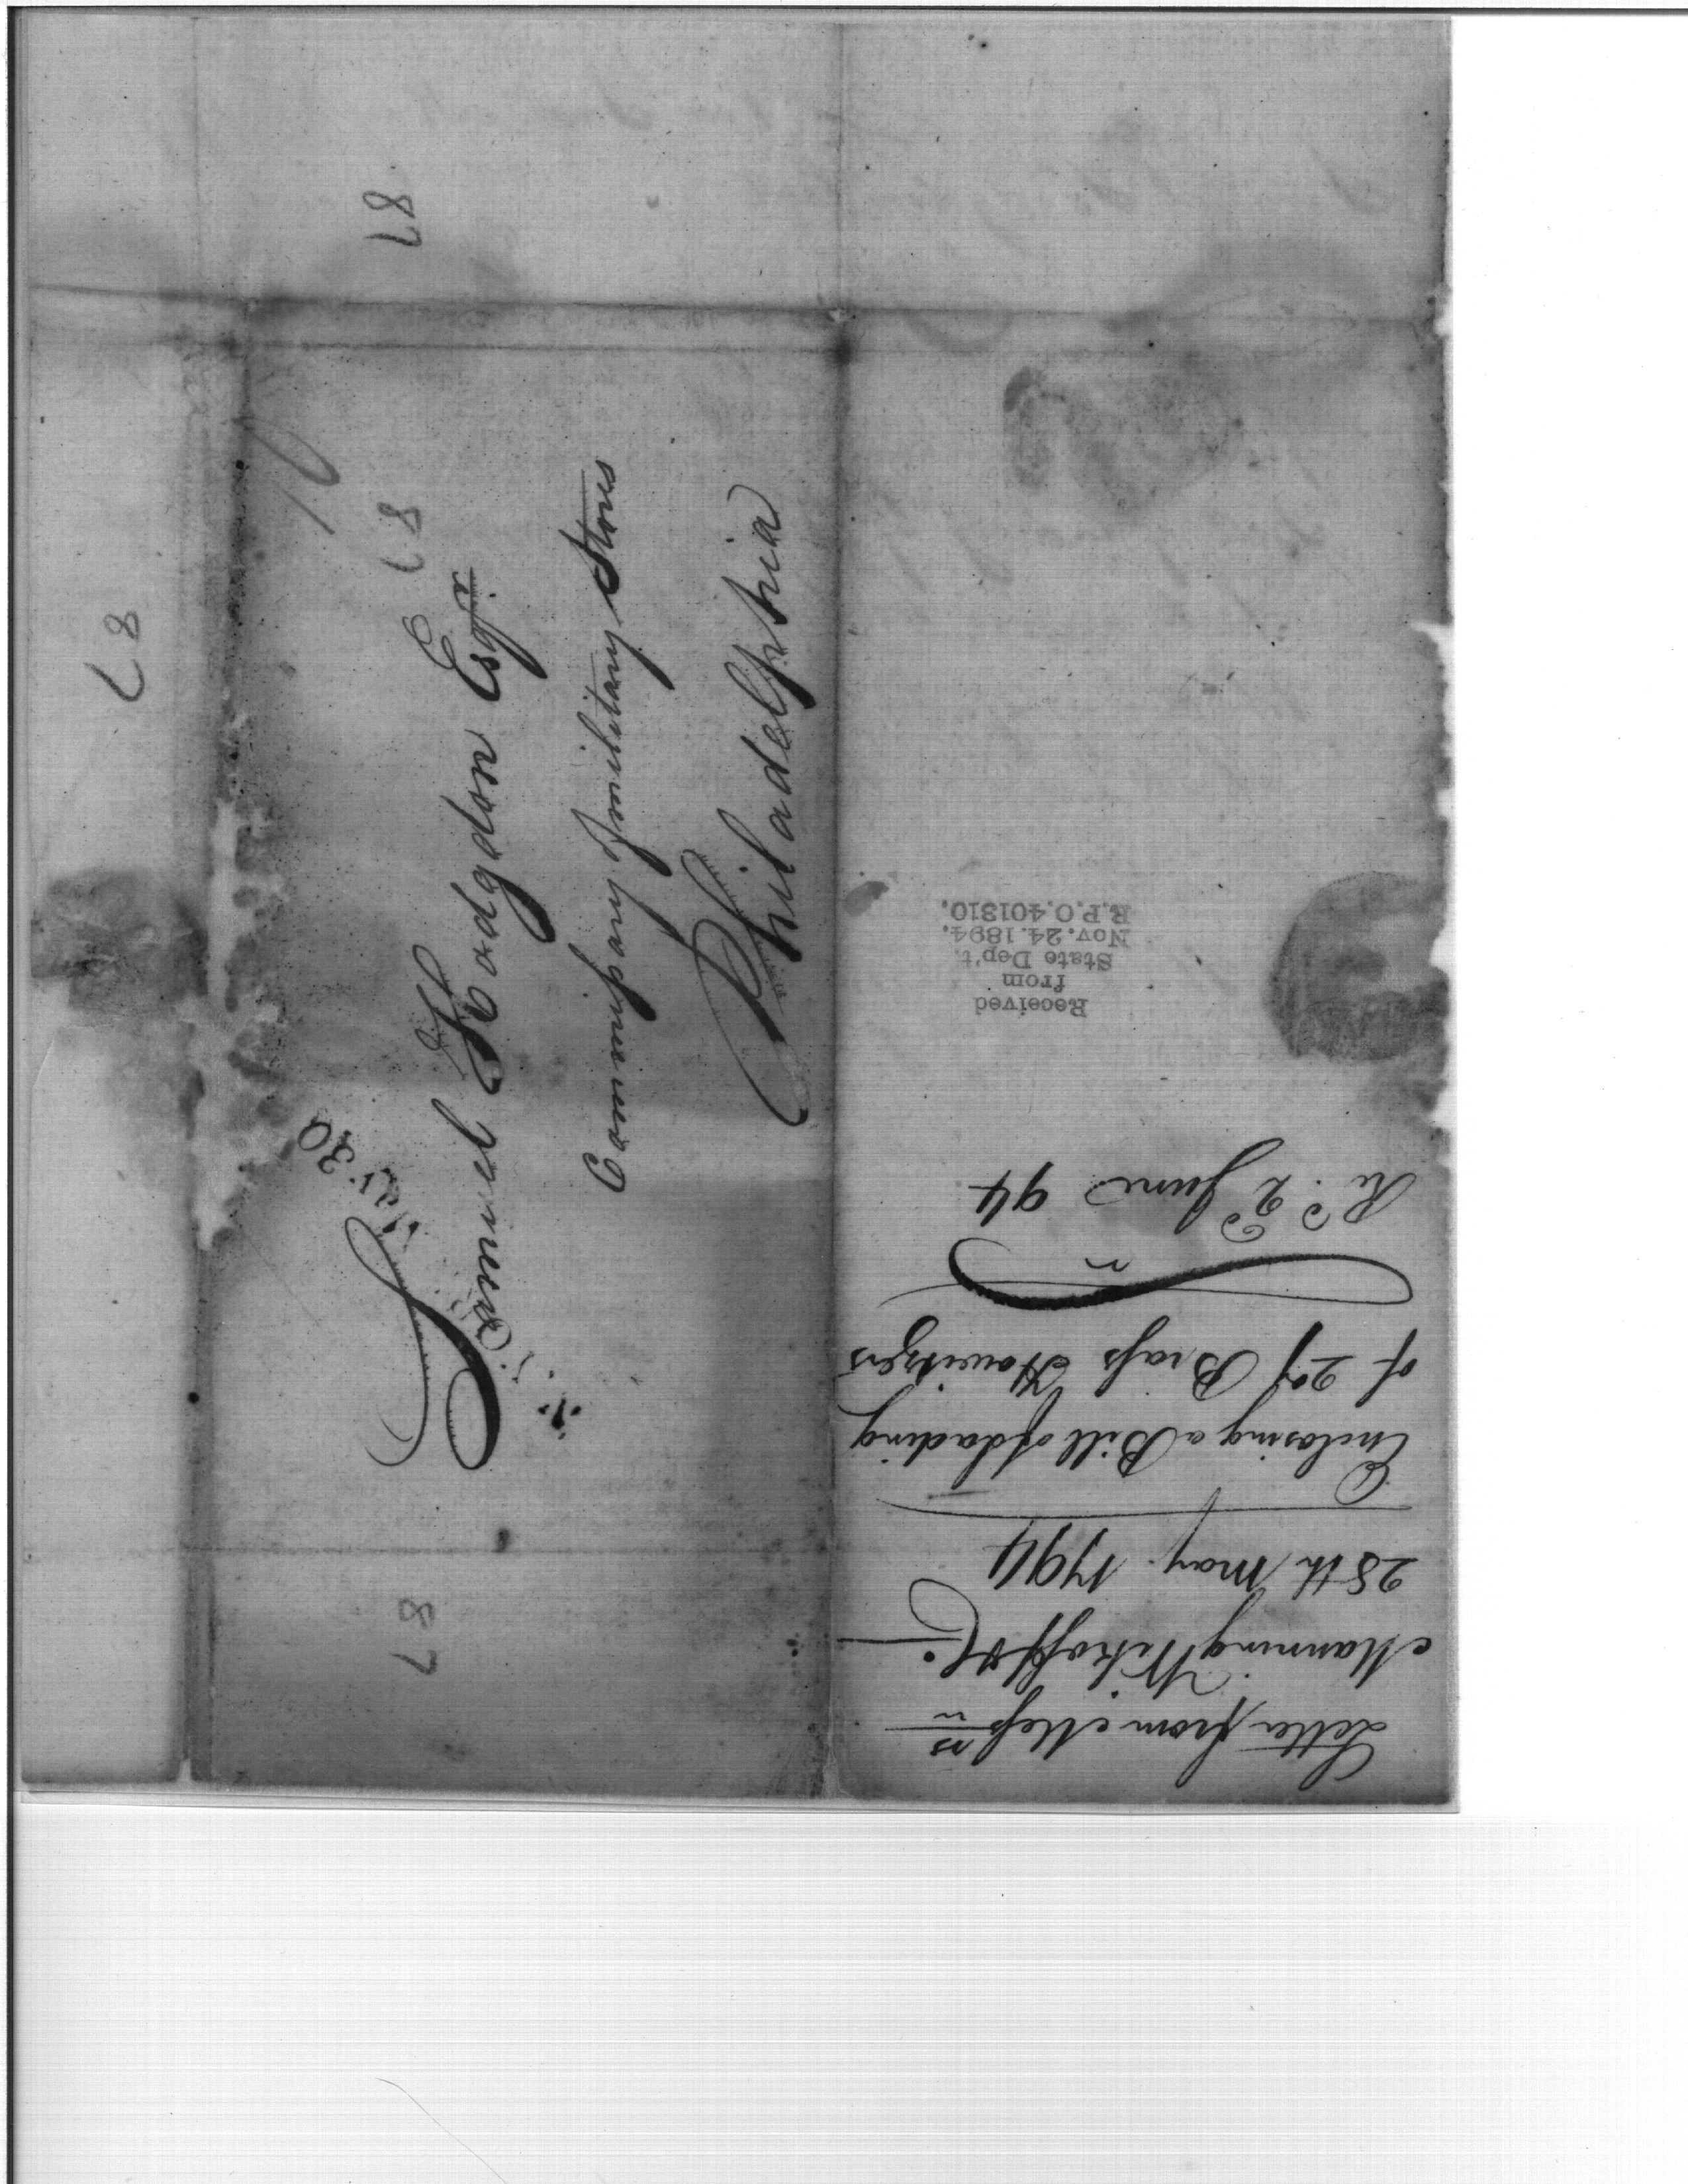 87
87
87
87
30
Samuel Hodgdon Esqr.
Commissary of military Stores
Philadelphia
Letter from Messrs
Manning Wikoff & C
28th May 1794
Enclosing a Bill of Lading
of 27 Brass Howitzers
Recd. 2d June 94
Received
from
State Dep't.
Nov. 24. 1894.
R.P.O. 401310.